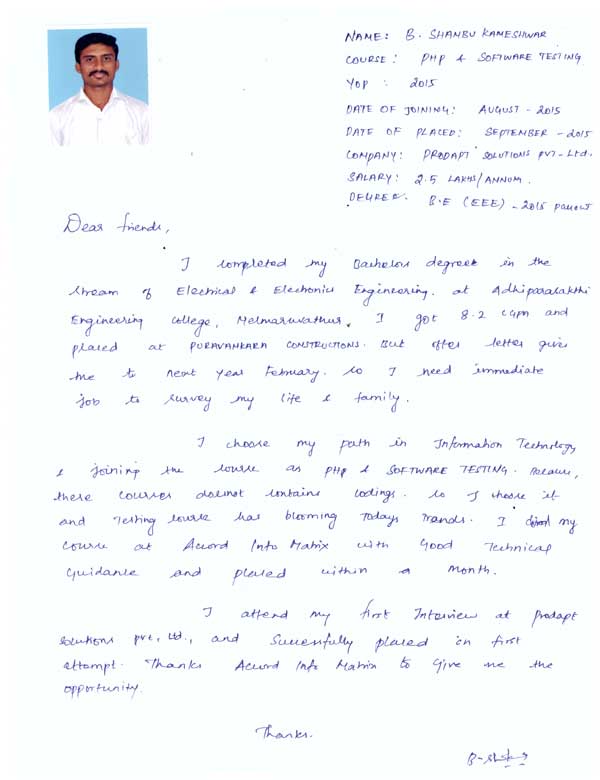 NAME: B. SHANBU KAMESHWAR
COURSE: PHP & SOFTWARE TESTING
YOP : 2015
DATE OF JOINING: AUGUST - 2015
DATE OF PLACED: SEPTEMBER - 2015
COMPANY: PRODAPT SOLUTIONS PVT-Ltd.
SALARY: 2.5 LAKHS/ANNUM.
DEGREE. B.E (EEE) - 2015 PASSOUT
Dear friends,
I completed my Bachelors degree in the
stream of Electrical & Electronics Engineering. at Adhiparasakthi
Engineering College, Melmaruvathur. I got 8.2 CGPA and
placed at PURAVANKARA CONSTRUCTIONS. But offer letter gives
me to next year February. so I need immediate
job to survey my life & family.
I choose my path in Information Technology
& joining the course as PHP & SOFTWARE TESTING. Because,
these courses doesnot contains codings. so I choose it
and Testing course has blooming Todays Trends. I my
course at Accord Info Matrix with Good Technical
Guidance and placed within a month.
I attend my first Interview at Prodapt
Solutions pvt. Ltd., and Successfully placed in first
attempt. Thanks Accord Info Matrix to Give me the
opportunity.
Thanks.